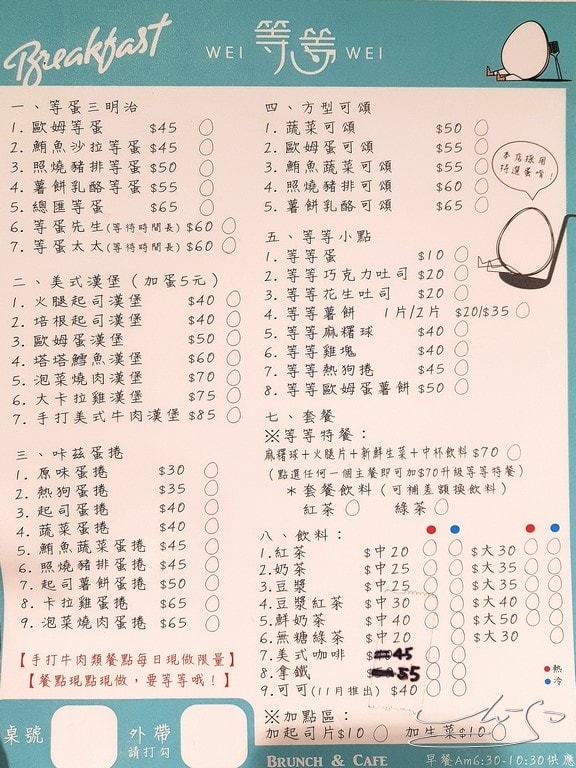 Breakfast
WEI 等等 WEI
一、等蛋三明治
1. 歐姆等蛋 $45
2. 鮪魚沙拉等蛋 $45
3. 照燒豬排等蛋 $50
4. 薯餅乳酪等蛋 $55
5. 總匯等蛋 $65
6. 等蛋先生(等待時間長) $60
7. 等蛋太太(等待時間長) $60
二、美式漢堡（加蛋5元）
1. 火腿起司漢堡 $40
2. 培根起司漢堡 $40
3. 歐姆蛋漢堡 $50
4. 塔塔鱈魚漢堡 $60
5. 泡菜燒肉漢堡 $70
6. 大卡拉雞漢堡 $75
7. 手打美式牛肉漢堡 $85
三、咔茲蛋捲
1. 原味蛋捲 $30
2. 熱狗蛋捲 $35
3. 起司蛋捲 $40
4. 蔬菜蛋捲 $40
5. 鮪魚蔬菜蛋捲 $45
6. 照燒豬排蛋捲 $45
7. 起司薯餅蛋捲 $50
8. 卡拉雞蛋捲 $65
9. 泡菜燒肉蛋捲 $65
【手打牛肉類餐點每日現做限量】
【餐點現點現做，要等等哦！】
桌號
外帶
請打勾
四、方型可頌
1. 蔬菜可頌 $50
2. 歐姆蛋可頌 $55
3. 鮪魚蔬菜可頌 $55
4. 照燒豬排可頌 $60
5. 薯餅乳酪可頌 $65
本店採用
特選蛋唷！
五、等等小點
1. 等等蛋 $10
2. 等等巧克力吐司 $20
3. 等等花生吐司 $20
4. 等等薯餅 1片/2片 $20/$35
5. 等等麻糬球 $40
6. 等等雞塊 $40
7. 等等熱狗捲 $45
8. 等等歐姆蛋薯餅 $50
七、套餐
※等等特餐：
麻糬球＋火腿片＋新鮮生菜＋中杯飲料 $70
（點選任何一個主餐即可加$70升級等等特餐）
＊套餐飲料（可補差額換飲料）
紅茶 綠茶
八、飲料：
1. 紅茶 $中20 $大30
2. 奶茶 $中25 $大35
3. 豆漿 $中25 $大35
4. 豆漿紅茶 $中30 $大40
5. 鮮奶茶 $中40 $大50
6. 無糖綠茶 $中20 $大30
7. 美式咖啡 45
8. 拿鐵 55
9. 可可(11月推出) $40
熱
冷
※加點區：
加起司片$10 加生菜$10
BRUNCH & CAFE
早餐Am6:30-10:30供應